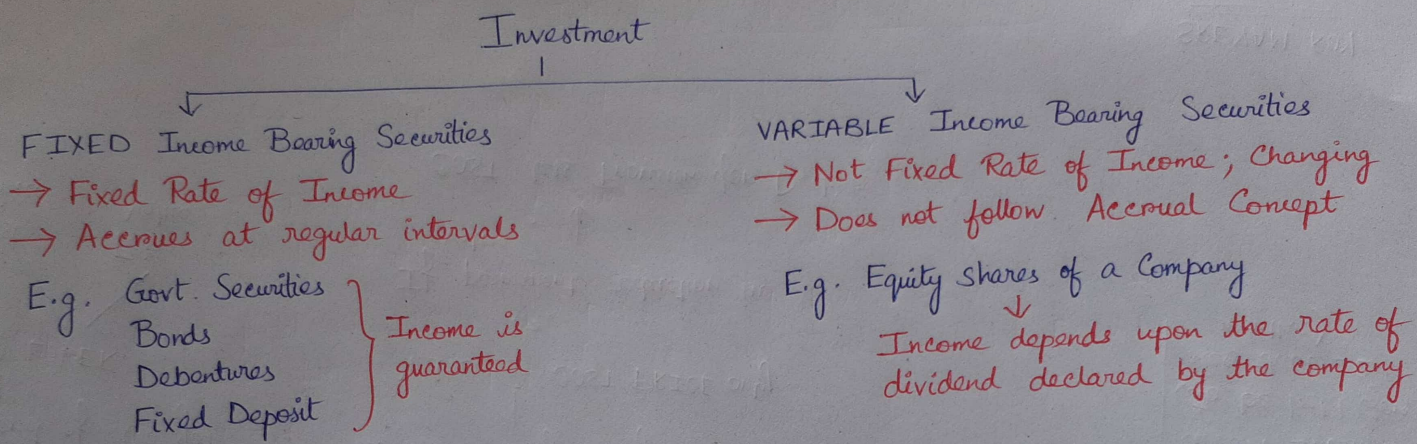 Investment
FIXED Income Bearing Securities
→ Fixed Rate of Income
→ Accrues at regular intervals
E.g. Govt. Securities
Bonds
Debentures
Fixed Deposit
Income is
guaranteed
VARIABLE Income Bearing Securities
→ Not Fixed Rate of Income; Changing
→ Does not follow Accrual Concept
E.g. Equity Shares of a Company
Income depends upon the rate of
dividend declared by the company